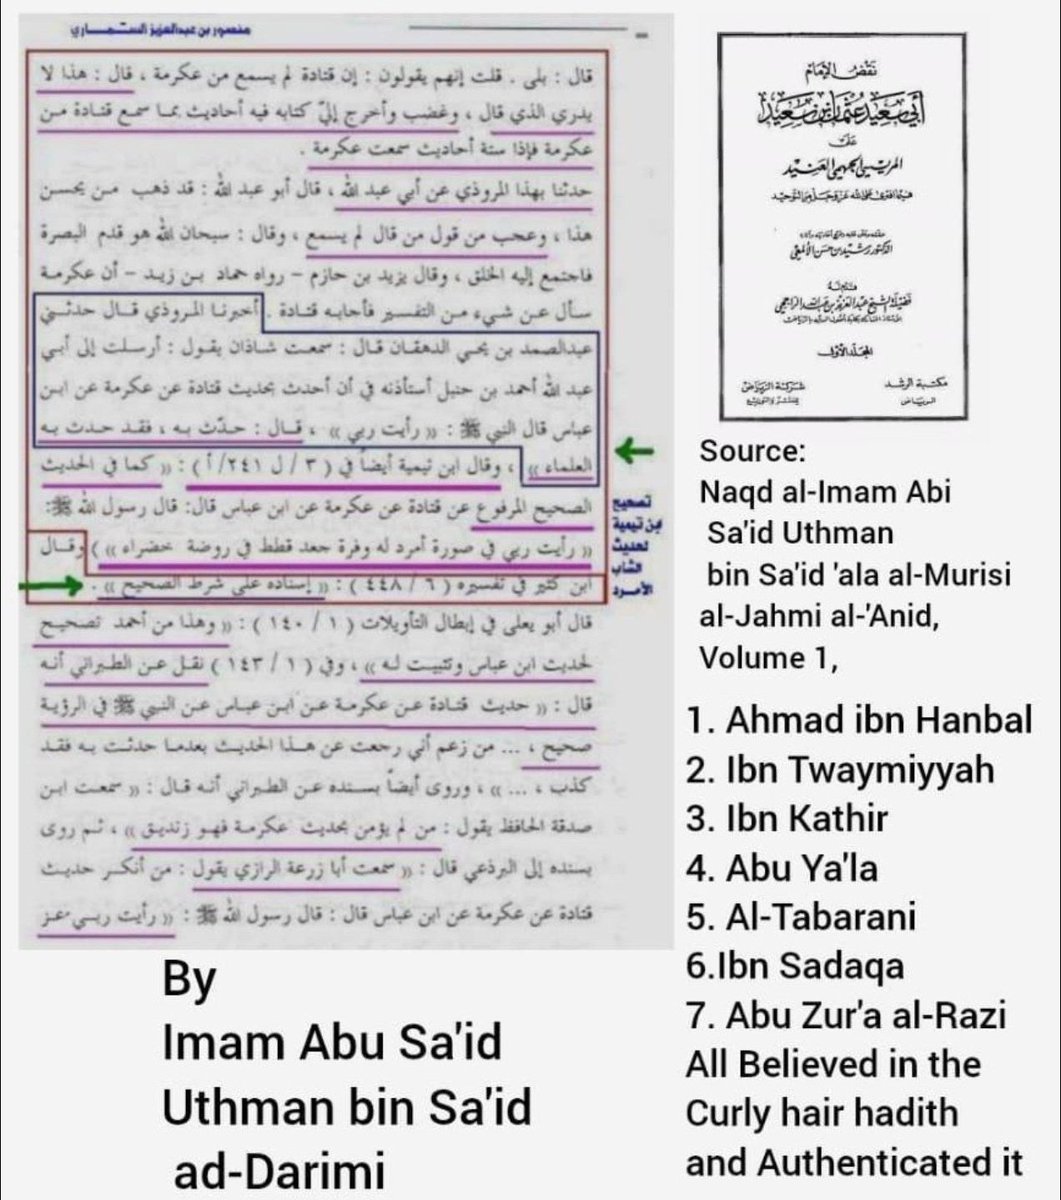 منصور بن عبدالعزيز السماري
قال : بلى . قلت إنهم يقولون : إن قتادة لم يسمع من عكرمة ، قال : هذا لا
يدري الذي قال ، وغضب وأخرج إليّ كتابه فيه أحاديث بما سمع قتادة من
عكرمة فإذا ستة أحاديث سمعت عكرمة .
حدثنا بهذا المروذي عن أبي عبد الله ، قال أبو عبد الله : قد ذهب من يحسن
هذا ، وعجب من قول من قال لم يسمع ، وقال : سبحان الله هو قدم البصرة
فاجتمع إليه الخلق ، وقال يزيد بن حازم – رواه حماد بن زيد – أن عكرمة
سأل عن شيء من التفسير فأجابه قتادة . أخبرنا المروذي قال حدثني
عبدالصمد بن يحيى الدهقان قال : سمعت شاذان يقول : أرسلت إلى أبي
عبد الله أحمد بن حنبل أستأذنه في أن أحدث بحديث قتادة عن عكرمة عن ابن
عباس قال النبي ﷺ : « رأيت ربي » ، قال : حدّث به ، فقد حدث به
العلماء » ، وقال ابن تيمية أيضاً في ( ٣ / ل ٢٤١ / أ ) : « كما في الحديث
الصحيح المرفوع عن قتادة عن عكرمة عن ابن عباس قال: قال رسول الله ﷺ:
« رأيت ربي في صورة أمرد له وفرة جعد قطط في روضة خضراء » ) وقال
ابن كثير في تفسيره ( ٦ / ٤٤٨ ) : « إسناده على شرط الصحيح » .
قال أبو يعلى في إبطال التأويلات ( ١ / ١٤٠ ) : « وهذا من أحمد تصحيح
لحديث ابن عباس وتثبيت له » ، وفي ( ١ / ١٤٣ ) نقل عن الطبراني أنه
قال : « حديث قتادة عن عكرمة عن ابن عباس عن النبي ﷺ في الرؤية
صحيح ، ... من زعم أني رجعت عن هذا الحديث بعدما حدثت به فقد
كذب ، ... » ، وروى أيضاً بسنده عن الطبراني أنه قال : « سمعت ابن
صدقة الحافظ يقول : من لم يؤمن بحديث عكرمة فهو زنديق » ، ثم روى
بسنده إلى البرذعي قال : « سمعت أبا زرعة الرازي يقول : من أنكر حديث
قتادة عن عكرمة عن ابن عباس قال : قال رسول الله ﷺ : « رأيت ربي عز
تصحيح
ابن تيمية
لحديث
الشاب
الأمرد
نقض الإمام
أبي سعيد عثمان بن سعيد
على
المريسي الجهمي العنيد
فيما افترى على الله عز وجل من التوحيد
الدكتور رشيد بن حسن الألمعي
فضيلة الشيخ عبدالعزيز بن عبدالله الراجحي
المجلد الأول
مكتبة الرشد
الرياض
شركة الرياض
للنشر والتوزيع
Source:
Naqd al-Imam Abi
Sa'id Uthman
bin Sa'id 'ala al-Murisi
al-Jahmi al-'Anid,
Volume 1,
1. Ahmad ibn Hanbal
2. Ibn Twaymiyyah
3. Ibn Kathir
4. Abu Ya'la
5. Al-Tabarani
6.Ibn Sadaqa
7. Abu Zur'a al-Razi
All Believed in the
Curly hair hadith
and Authenticated it
By
Imam Abu Sa'id
Uthman bin Sa'id
ad-Darimi